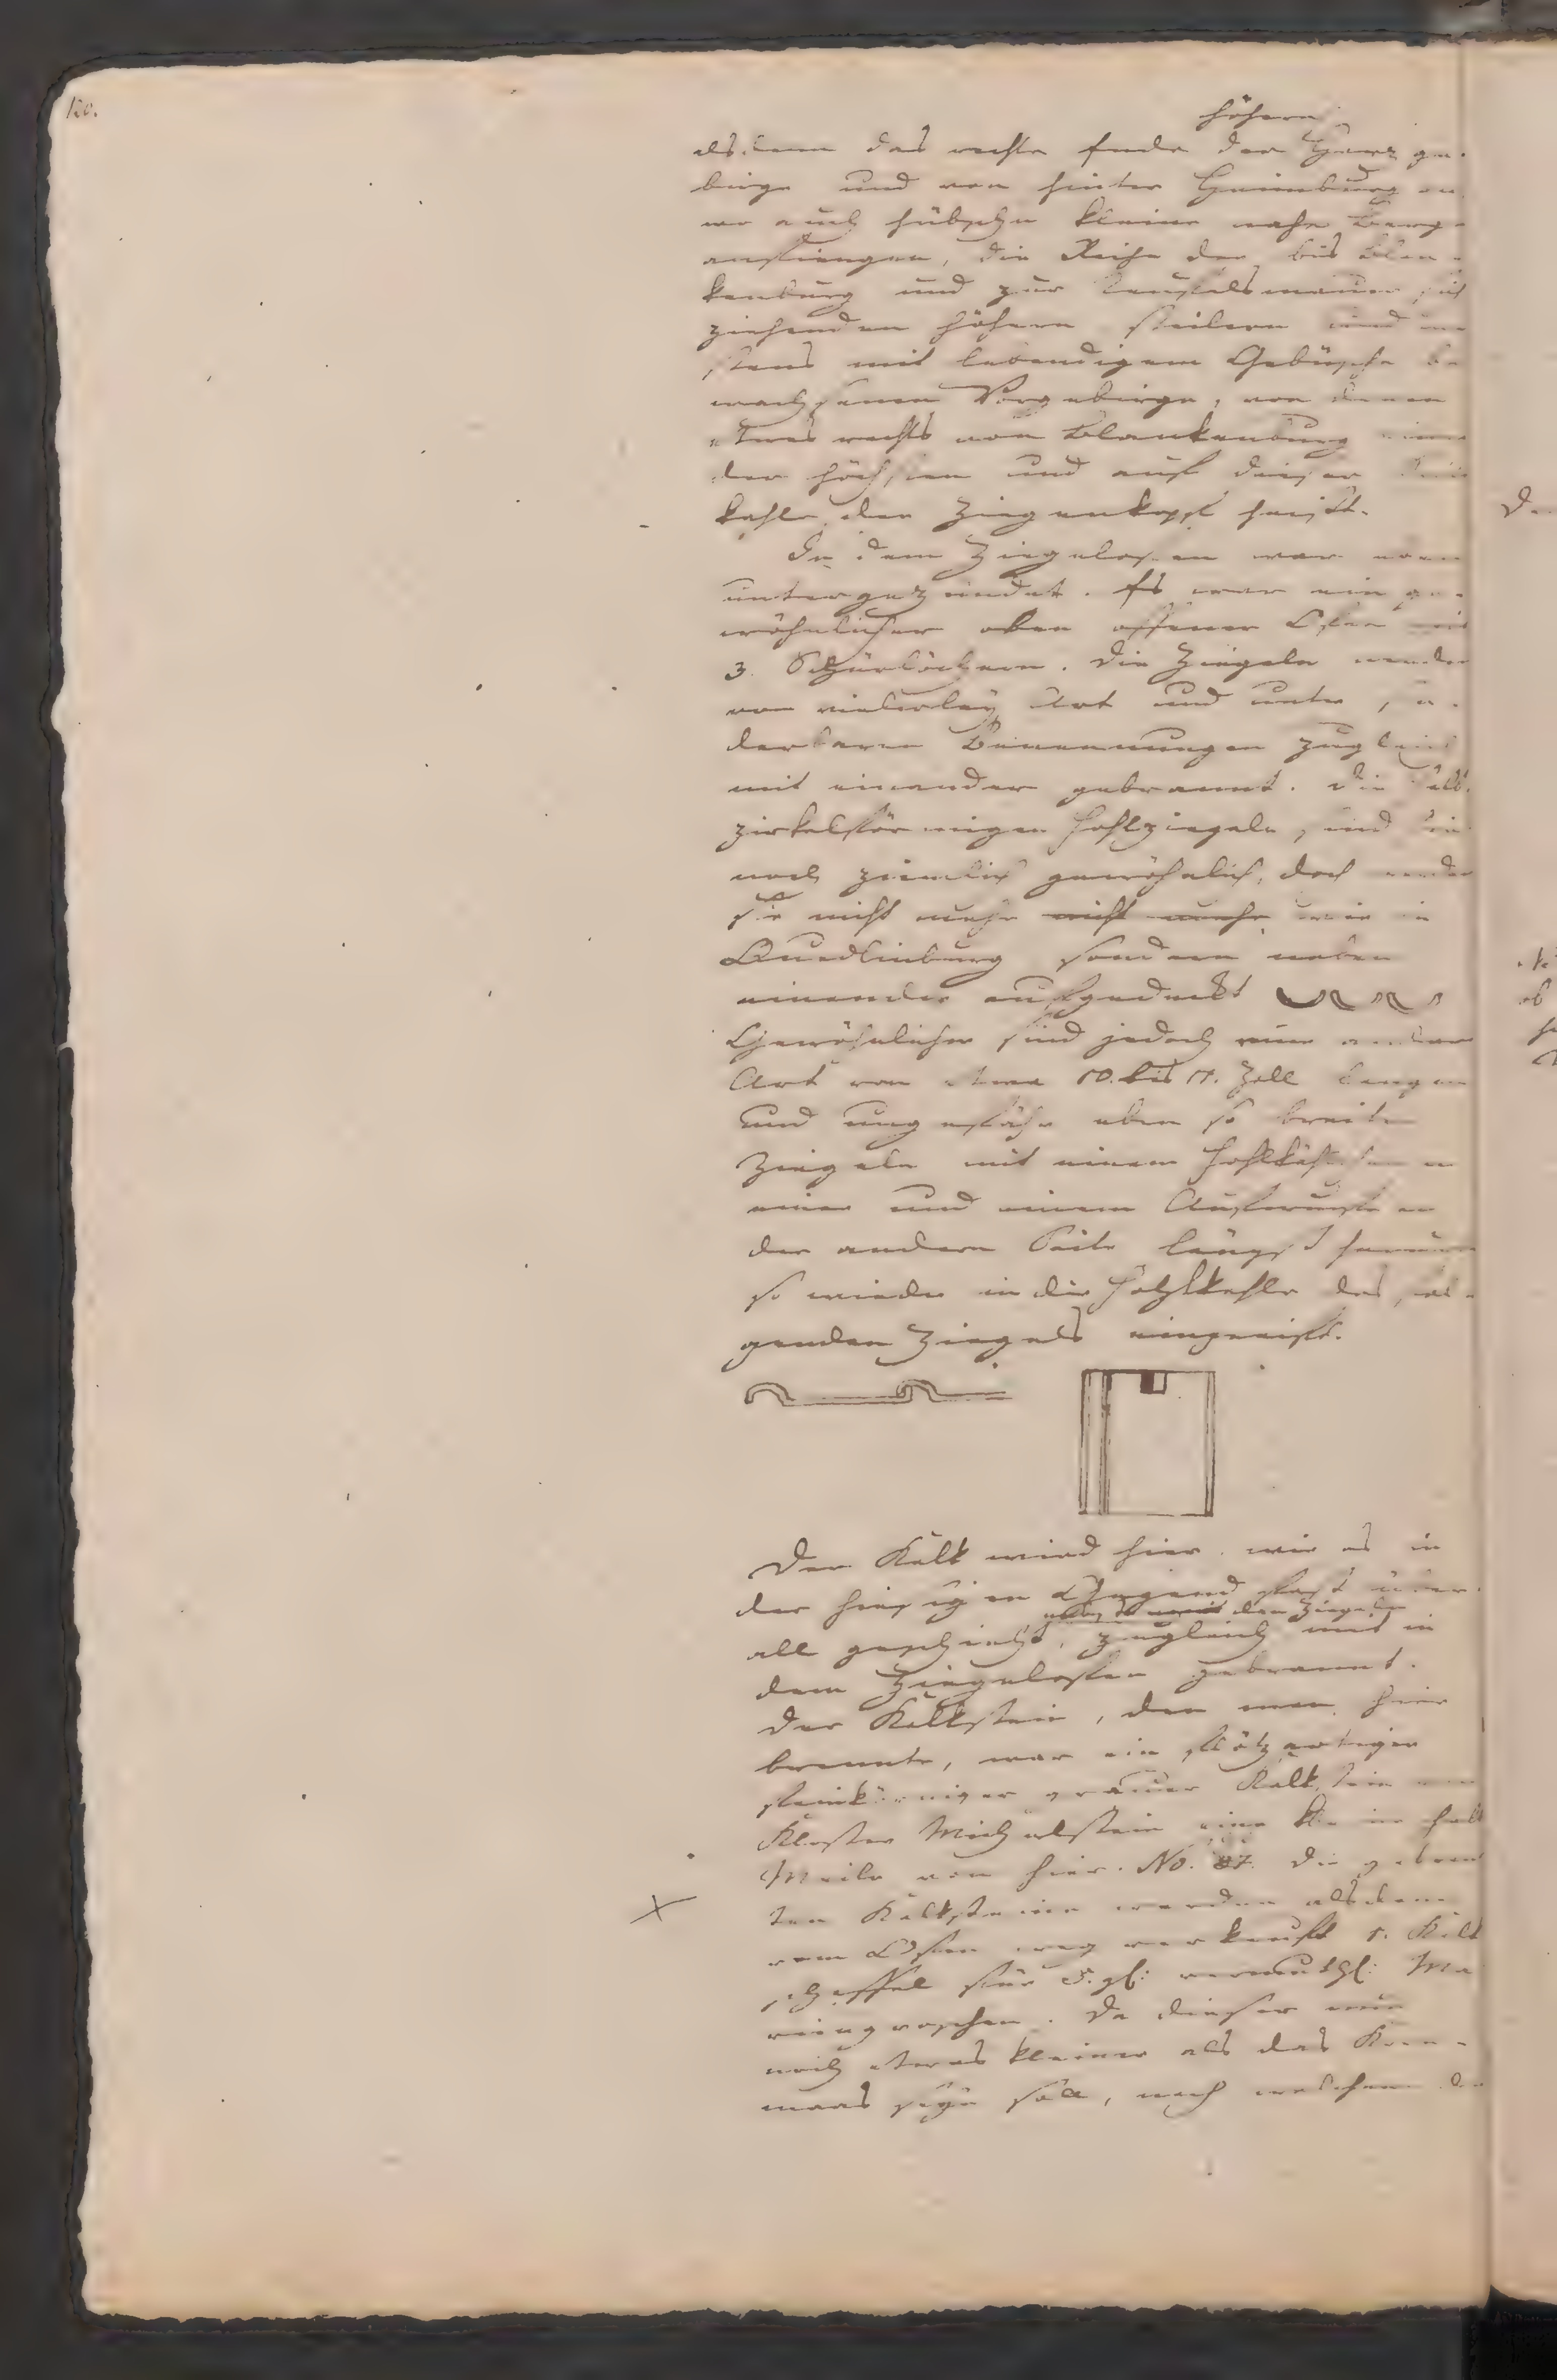 120.
höhern
als dann das rechte Ende der Harz ge-
birge und von hinter Heimburg an
wo auch hübsche kleine nahe Berge
anfiengen, die Reihe der bis Blan-
kenburg und zur Teufelsmauer sich
ziehenden höhern steilern und mei
stens mit lebendigem Gebüsche be
wachsenen Vorgebirge, von denen
etwas rechts von Blankenburg einer
der höchsten und auf dieser Seite
kahle der Ziegenkopf heißt.
In dem Ziegelofen war eben
untergezündet. Es war ein ge-
wöhnlicher oben offener Ofen mit
3. Schürlöchern. Die Ziegeln werden
von vielerley Art und unter son-
derbaren Benennungen zugleich
mit einander gebrannt. Die halb
zirkelförmigen Hohlziegeln, sind hier
noch ziemlich gewöhnlich, doch werden
sie nicht mehr nicht mehr wie in
Quedlinburg sondern neben
einander aufgedeckt
Gewöhnlicher sind jedoch eine andere
Art von etwa 10. bis 11. Zoll langen
und ungefähr eben so breite
Ziegeln mit einem an
einer und einem an
der andern Seite längst herunter
so wieder in die Hohlkehle des fol-
genden Ziegels eingreift.
Der Kalk wird hier wie es in
der hiesigen Gegend fast über
all geschieht, zugleich mit in
nebst den Ziegeln
dem Ziegelofen gebrannt.
Der Kalkstein, den man hier
brennte, war ein flötzartiger
feinkörniger grauer Kalkstein vom
Kloster Michaelstein eine kleine halbe
Meile von hier. No. 87. Die gebrann
ten Kalksteine werden alsdann
vom Ofen weg verkauft 1. Kalk
scheffel für 5. gl: vermuthl: Ma
riengroschen. Da dieser nun
noch etwas kleiner als das Korn-
maas seyn soll, nach welchem der